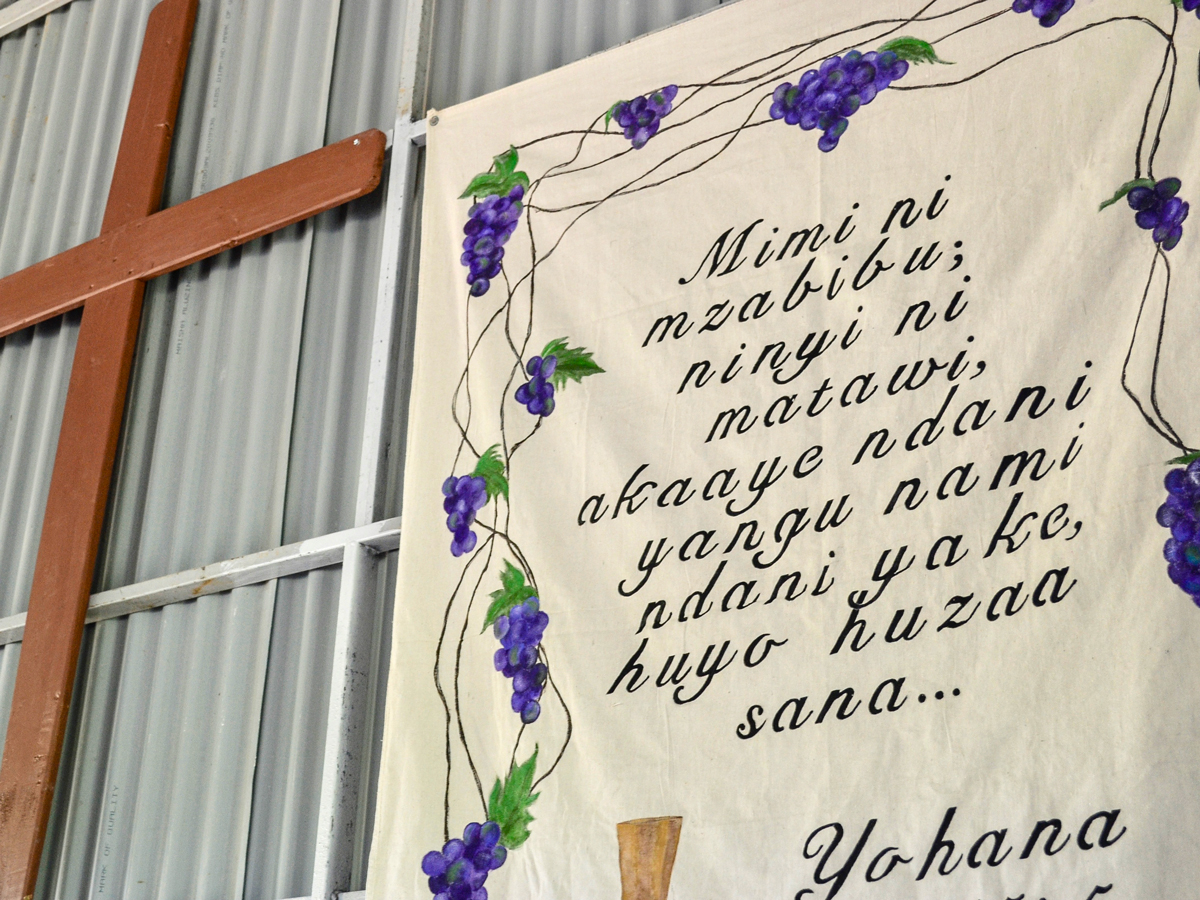 Mimi ni
mzabibu;
ninyi ni
matawi,
akaaye ndani
yangu nami
ndani yake,
huyo huzaa
sana...
Yohana